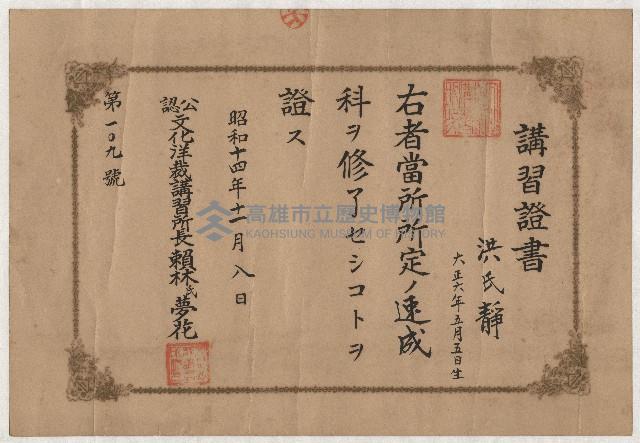 講習證書
洪氏靜
大正六年五月五日生
右者當所所定ノ速成
科ヲ修了セシコトヲ
證ス
昭和十四年十一月八日
公認文化洋裁講習所長賴林氏夢花
第一〇九號
高雄市立歷史博物館
KAOHSIUNG MUSEUM OF HISTORY